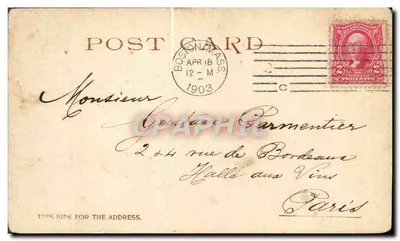 POST CARD
BOSTON, MASS.
APR 18
12 - M
1903
Monsieur
Gustave Parmentier
2 & 4 rue de Bordeaux
Halle aux Vins
Paris
THIS SIDE FOR THE ADDRESS.